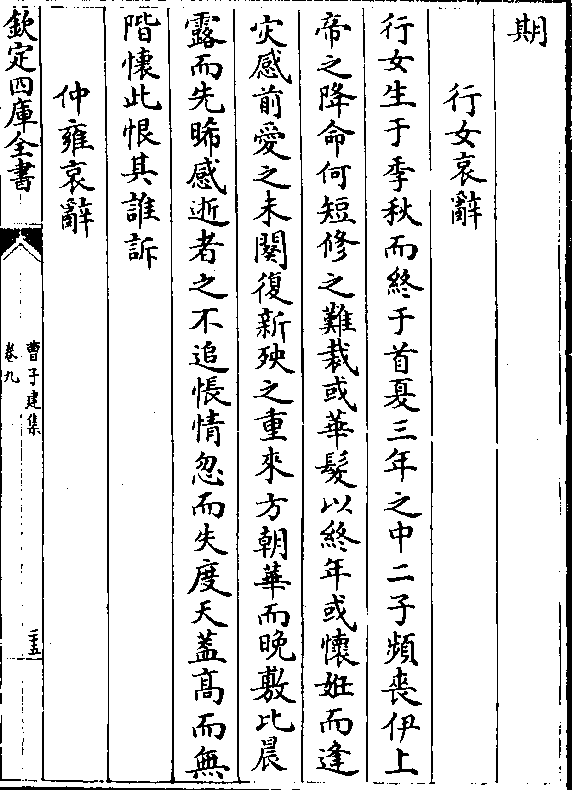 期
行女哀辭
行女生于季秋而終于首夏三年之中二子頻喪伊上
帝之降命何短修之難裁或華髮以終年或懷姙而逢
灾感前愛之未闋復新殃之重來方朝華而晚敷比晨
露而先晞感逝者之不追悵情忽而失度天葢髙而無
階懷此恨其誰訴
仲雍哀辭
欽定四庫全書
曹子建集
卷九
二五